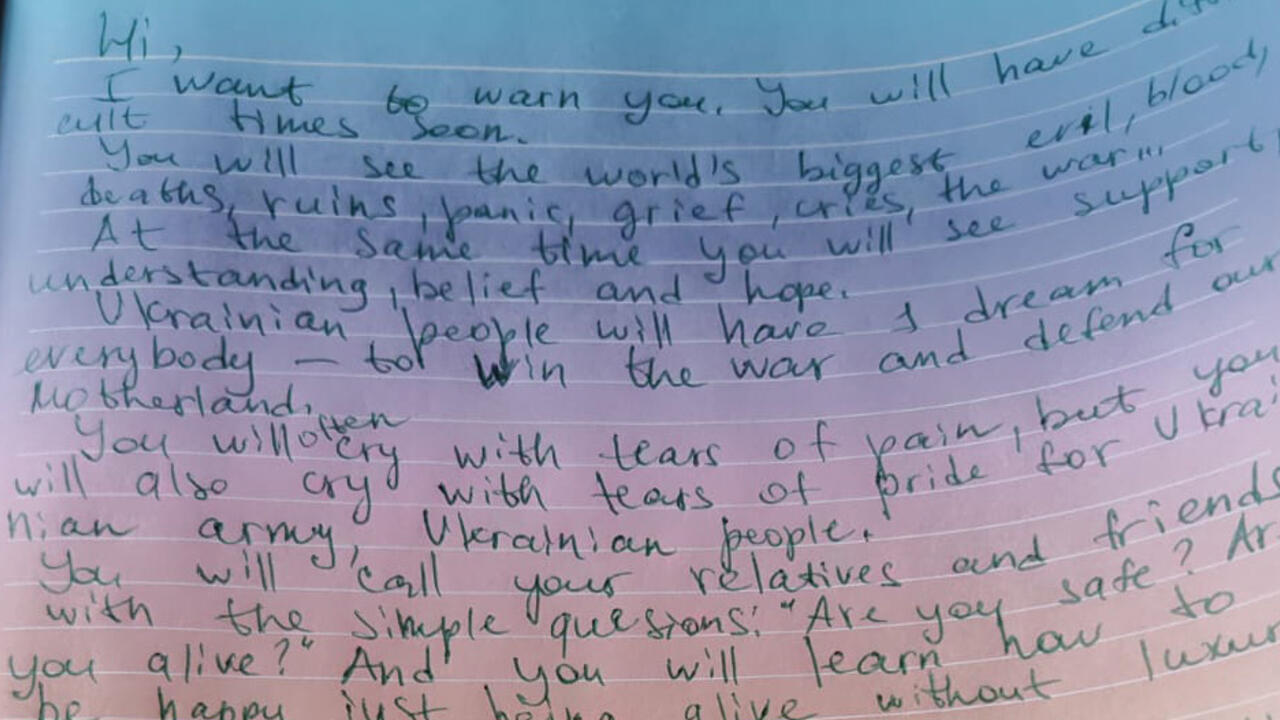 Hi,
I want to warn you. You will have
cult times soon.
You will see the world's biggest evil, blood,
deaths, ruins, panic, grief, cries, the war...
At the same time you will see support,
understanding, belief and hope.
Ukrainian people will have 1 dream for
everybody — to win the war and defend our
Motherland.
You will often cry with tears of pain, but you
will also cry with tears of pride for Ukrai
nian army, Ukrainian people.
You will call your relatives and friends
with the simple questions: "Are you safe? Are
you alive?" And you will learn how to
be happy just being alive without